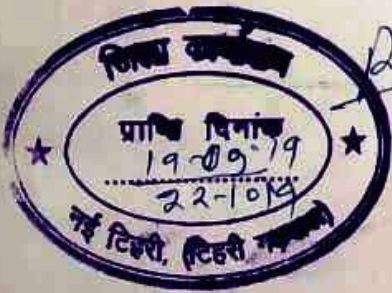 जिला कार्यालय
प्राप्ति दिनांक
19-09-19
22-10-19
नई टिहरी, (टिहरी गढ़वाल)